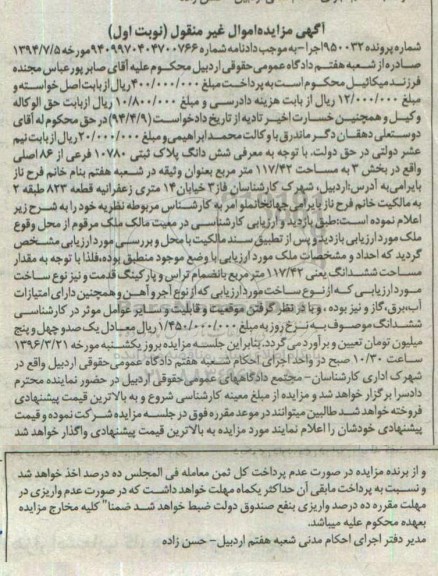 آگهی مزایده اموال غیر منقول (نوبت اول)
شماره پرونده ۹۵۰۰۳۲اجرا-به موجب دادنامه شماره ۹۴۰۹۹۷۰۴۰۴۷۰۰۷۶۶مورخه ۱۳۹۴/۷/۵
صادره از شعبه هفتم دادگاه عمومی حقوقی اردبیل محکوم علیه آقای صابر پورعباس مجنده
فرزند میکائیل محکوم است به پرداخت مبلغ ۴۰۰/۰۰۰/۰۰۰ریال از بابت اصل خواسته و
مبلغ ۱۲/۰۰۰/۰۰۰ ریال از بابت هزینه دادرسی و مبلغ ۱۰/۸۰۰/۰۰۰ ریال ازبابت حق الوکاله
وکیل و همچنین خسارت اخیر تادیه از تاریخ دادخواست (۹۴/۴/۹) در حق محکوم له آقای
دوستعلی دهقان دگر ماندرق با وکالت محمد ابراهیمی و مبلغ ۲۰/۰۰۰/۰۰۰ریال از بابت نیم
عشر دولتی در حق دولت. با توجه به معرفی شش دانگ پلاک ثبتی ۱۰۷۸۰ فرعی از ۸۶ اصلی
واقع در بخش ۳ به مساحت ۱۱۷/۴۲ متر مربع بعنوان وثیقه در شعبه هفتم بنام خانم فرح ناز
بایرامی به آدرس:اردبیل، شهرک کارشناسان فاز۳ خیابان ۱۴ متری زعفرانیه قطعه ۸۲۳ طبقه ۲
به مالکیت خانم فرح ناز بایرامی جهانخانملو امر به کارشناس مربوطه نظریه خود را به شرح زیر
اعلام نموده است:طبق بازدید و ارزیابی کارشناسی در معیت مالک ملک مرقوم از محل وقوع
ملک مورد ارزیابی بازدید و پس از تطبیق سند مالکیت با محل و بررسی مورد ارزیابی مشخص
گردید که اعداد و مشخصات ملک مورد ارزیابی با وضع موجود منطبق بوده،فلذا با توجه به مقدار
مساحت ششدانگ یعنی ۱۱۷/۴۲ متر مربع بانضمام تراس و پارکینگ قدمت و نیز نوع ساخت
مورد ارزیابی که از نوع ساخت مورد ارزیابی که از نوع آجر و آهن و همچنین دارای امتیازات
آب،برق،گاز و نیز بوده ، و با در نظر گرفتن موقعیت و قابلیت و سایر عوامل موثر در کارشناسی
ششدانگ موصوف به نرخ روز به مبلغ ۱/۴۵۰/۰۰۰/۰۰۰ریال معادل یک صدو چهل و پنج
میلیون تومان تعیین و برآورد می گردد، بنابراین جلسه مزایده بروز یکشنبه مورخه ۱۳۹۶/۳/۲۱
ساعت ۱۰/۳۰ صبح در واحد اجرای احکام شعبه هفتم دادگاه عمومی حقوقی اردبیل واقع در
شهرک اداری کارشناسان- مجتمع دادگاههای عمومی حقوقی اردبیل در حضور نماینده محترم
دادسرا برگزار خواهد شد و مزایده از مبلغ معینه کارشناسی شروع و به بالاترین قیمت پیشنهادی
فروخته خواهد شد طالبین میتوانند در موعد مقرره فوق در جلسه مزایده شرکت نموده و قیمت
پیشنهادی خودشان را اعلام نمایند مورد مزایده به بالاترین قیمت پیشنهادی واگذار خواهد شد
و از برنده مزایده در صورت عدم پرداخت کل ثمن معامله فی المجلس ده درصد اخذ خواهد شد
و نسبت به پرداخت مابقی آن حداکثر یکماه مهلت خواهد داشت که در صورت عدم واریزی در
مهلت مقرره ده درصد واریزی بنفع صندوق دولت ضبط خواهد شد ضمنا" کلیه مخارج مزایده
بعهده محکوم علیه میباشد.
مدیر دفتر اجرای احکام مدنی شعبه هفتم اردبیل- حسن زاده